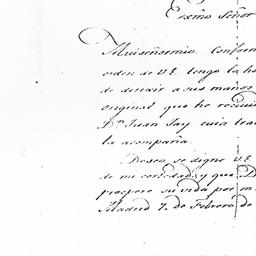 Exmo Señor
Mui señor mio. Conform
orden de V.E. tengo la ho
de denair a sus manos
original que ho recivi
Dn. Juan Jay, cuia tra
la acompaña.
Deseo se digne V.E.
de mi cortedad, y que D
prospere su vida por m
Madrid 7. de Febrero de